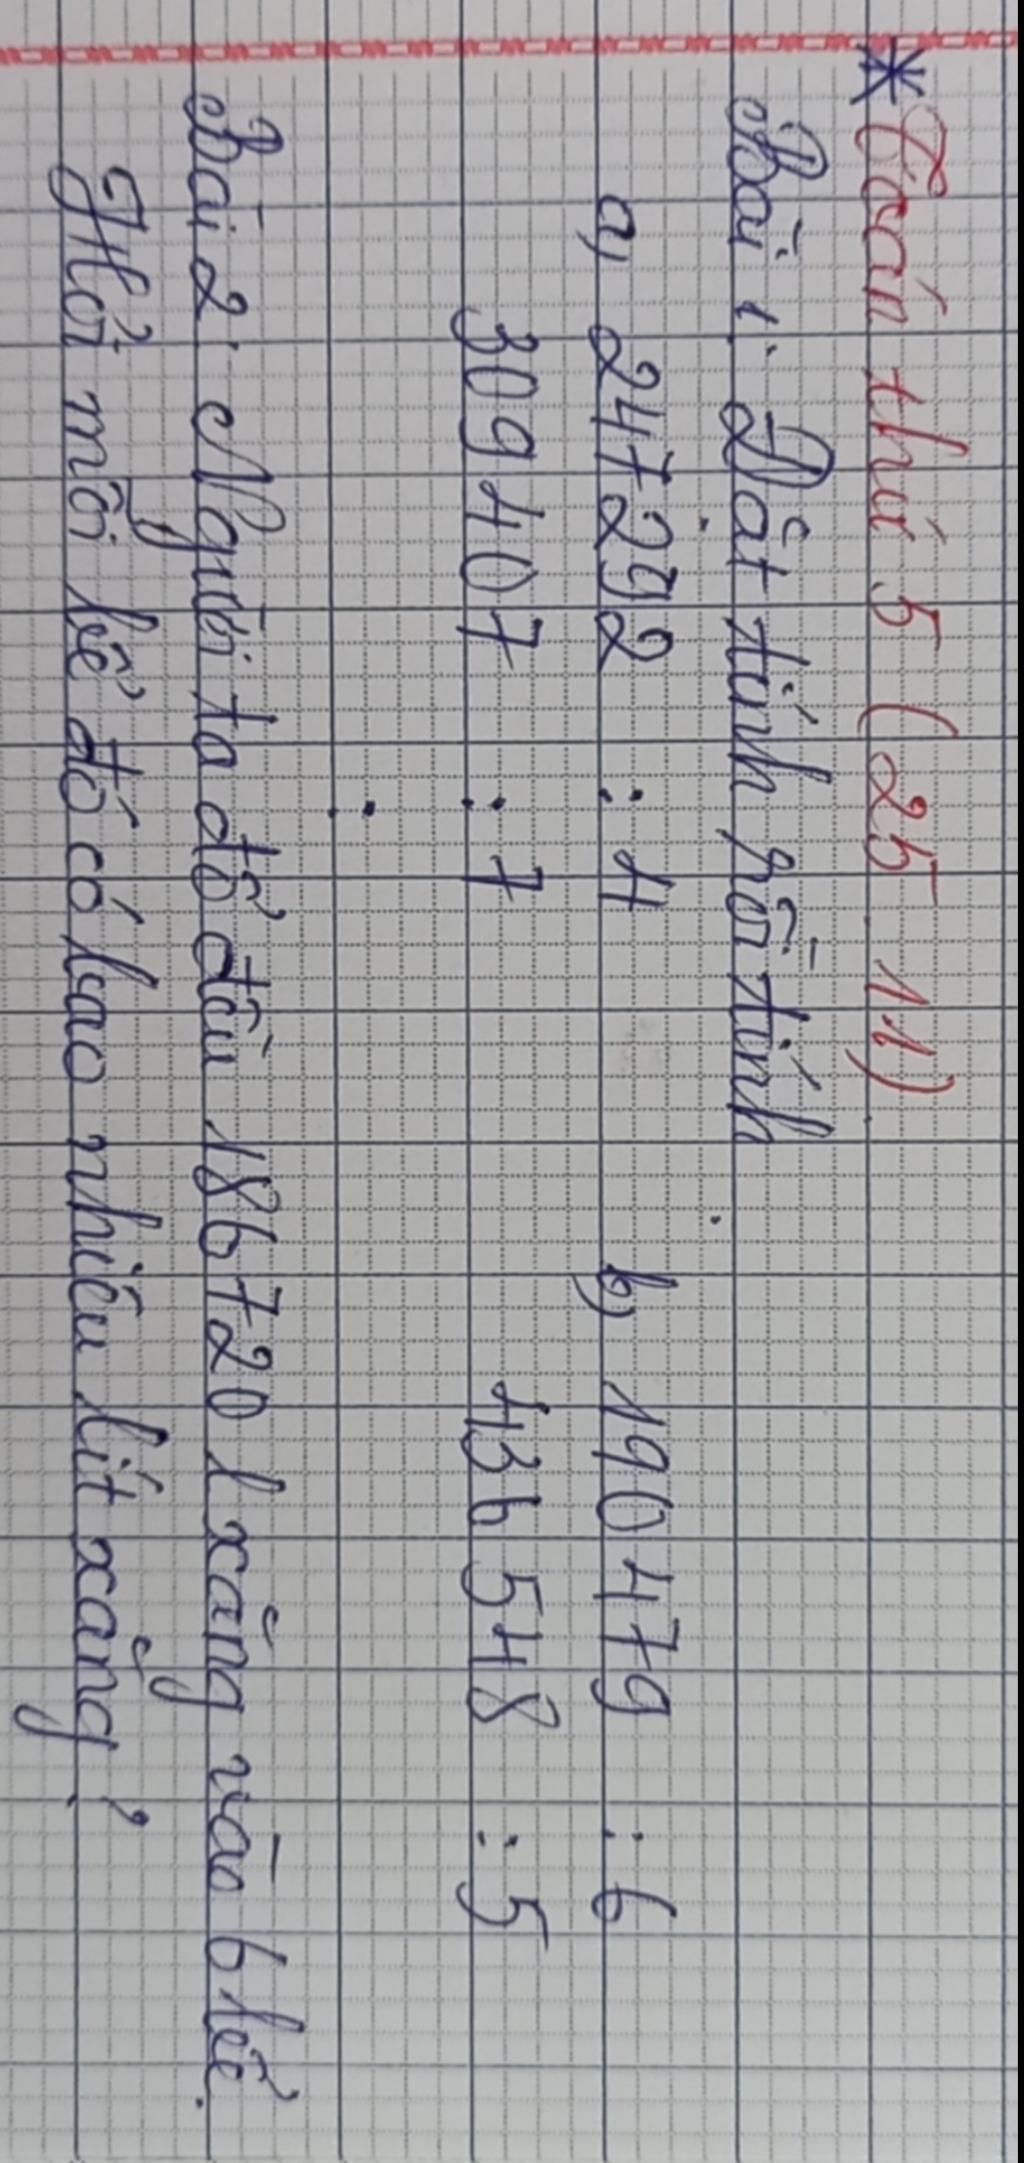 * Toán thứ 5 (25.11)
Bài 1: Đặt tính rồi tính
a, 247292 : 4 b, 190479 : 6
309407 : 7 436548 : 5
Bài 2: Người ta đổ đều 186720 l xăng vào 6 bể.
Hỏi mỗi bể đó có bao nhiêu lít xăng?